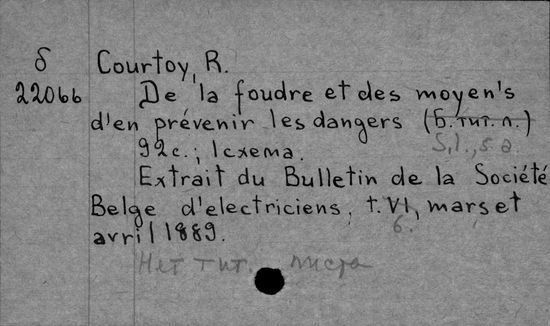 δ Courtoy, R.
22066 De la foudre et des moyen's
d'en prévenir les dangers (б. тит. л.)
S.l., s.a.
92с.; 1схема.
Extrait du Bulletin de la Société
Belge d'electriciens, t. VI, mars et
6.
avril 1889.
Нет тит. листа